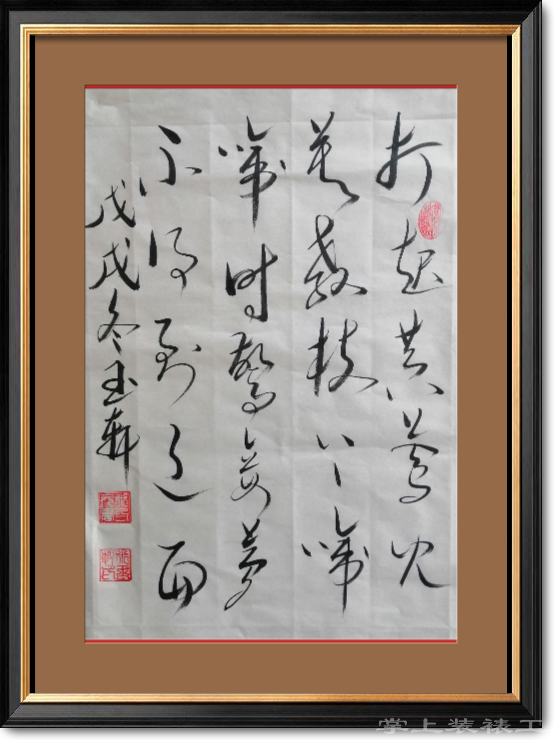 打起黄莺儿
莫教枝上啼
啼时驚妾夢
不得到辽西
戊戌冬玉轩
掌上装裱工